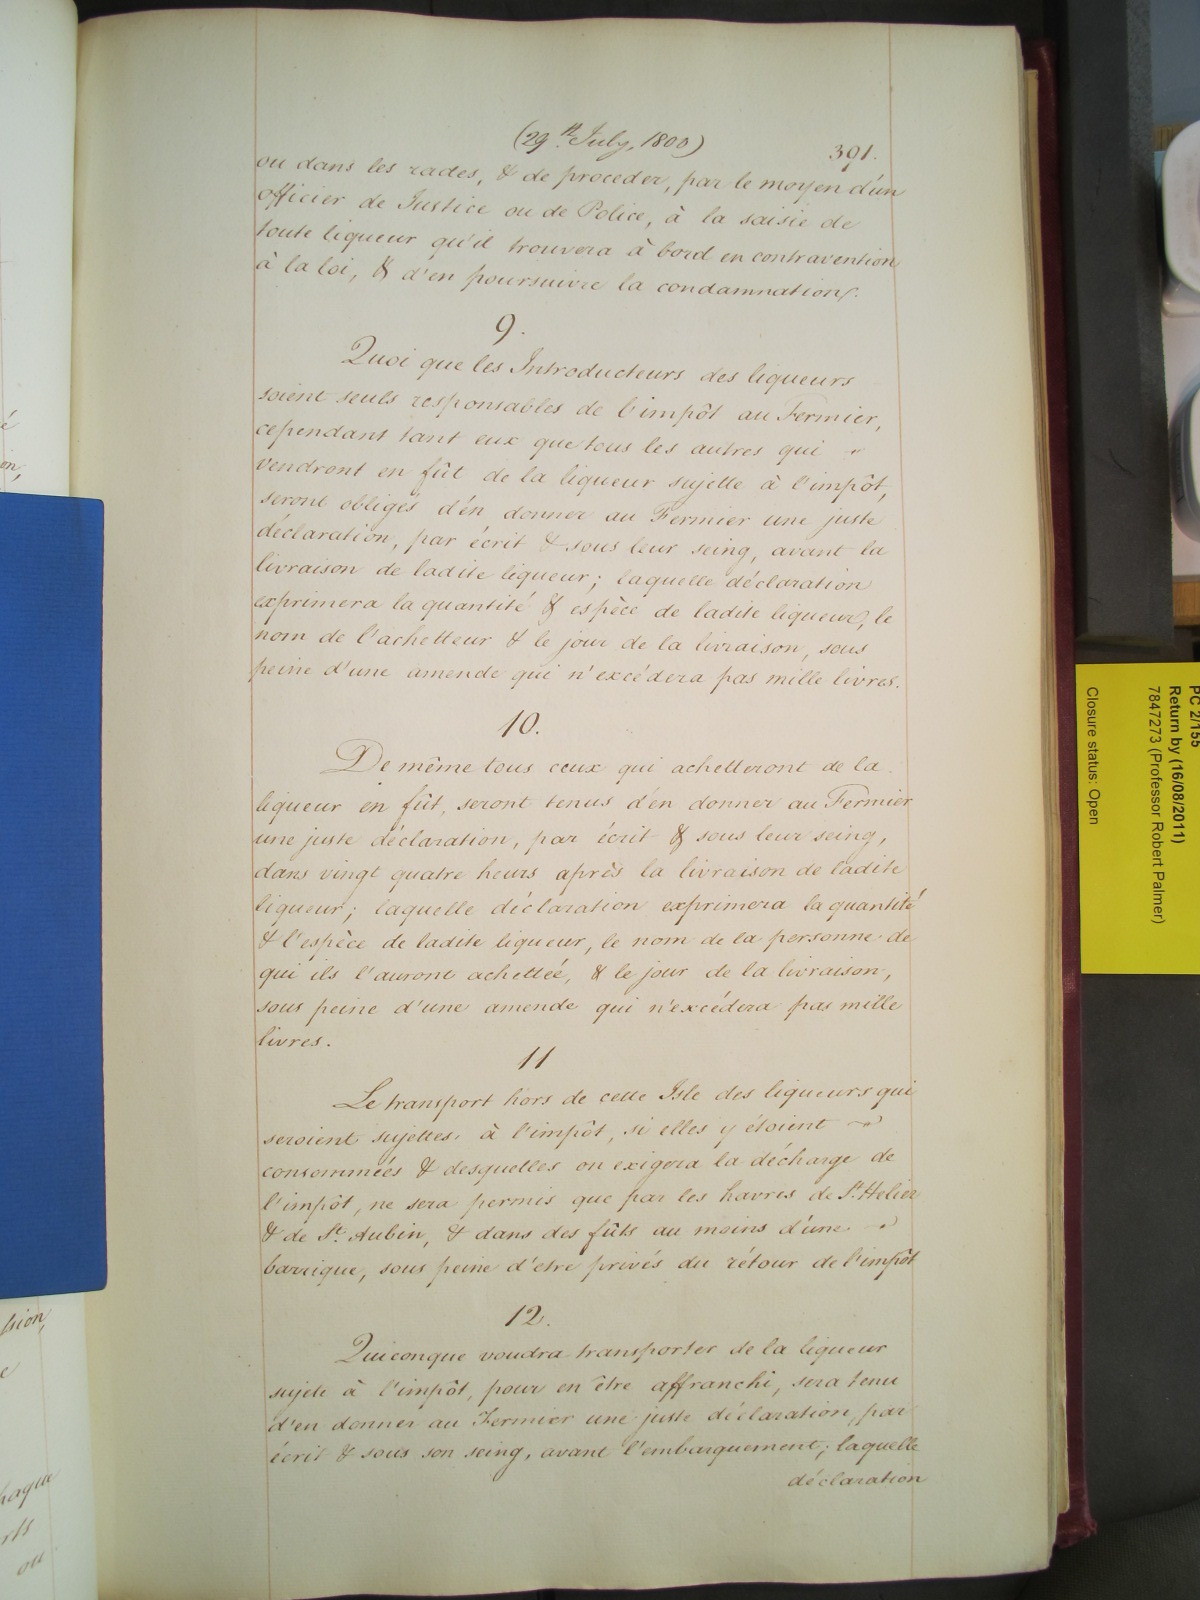 (29th July, 1800)
391.
ou dans les rades, & de proceder, par le moyen d'un
officier de Justice ou de Police, à la saisie de
toute liqueur qu'il trouvera à bord en contravention
à la loi, & d'en poursuivre la condamnation.
9.
Quoi que les Introducteurs des liqueurs
soient seuls responsables de l'impôt au Fermier,
cependant tant eux que tous les autres qui
vendront en fût de la liqueur sujette à l'impôt,
seront obligés d'en donner au Fermier une juste
déclaration, par écrit & sous leur seing, avant la
livraison de ladite liqueur; laquelle déclaration
exprimera la quantité & espèce de ladite liqueur, le
nom de l'achetteur & le jour de la livraison, sous
peine d'une amende qui n'excédera pas mille livres.
10.
De même tous ceux qui achetteront de la
liqueur en fût, seront tenus d'en donner au Fermier
une juste déclaration, par écrit & sous leur seing,
dans vingt quatre heurs après la livraison de ladite
liqueur; laquelle déclaration exprimera la quantité
& l'espèce de ladite liqueur, le nom de la personne de
qui ils l'auront achettée, & le jour de la livraison,
sous peine d'une amende qui n'excédera pas mille
livres.
11
Le transport hors de cette Isle des liqueurs qui
seroient sujettes à l'impôt, si elles y étoient
consommées & desquelles on exigera la décharge de
l'impôt, ne sera permis que par les havres de St. Helier
& de St. Aubin, & dans des fûts au moins d'une
barrique, sous peine d'etre privés du rétour de l'impôt
12.
Quiconque voudra transporter de la liqueur
sujete à l'impôt, pour en être affranchi, sera tenu
d'en donner au Fermier une juste déclaration, par
écrit & sous son seing, avant l'embarquement; laquelle
déclaration
é
on,
sion,
e
haque
rts
ou
PC 2/155
Return by (16/08/2011)
7847273 (Professor Robert Palmer)
Closure status: Open